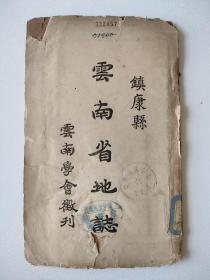 222457
鎮康縣
雲南省地誌
雲南學會徵刊